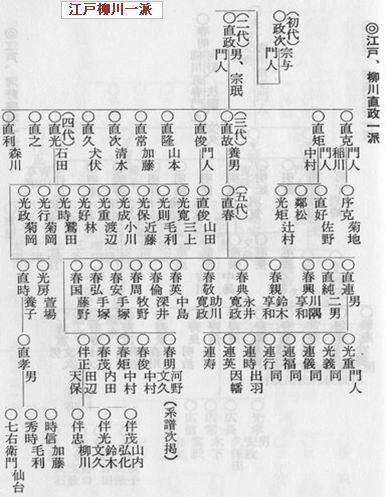 江戸柳川一派
◎江戸、柳川直政一派
(初代)宗与
○政次門人
(二代)男、宗珉
○直政門人
○直克門人 稲川
○直矩門人 中村
(三代)養男
○直故
○直俊門人
○直隆 山本
○直常 加藤
○直次 清水
○直久 犬伏
(四代)
○直光 石田
○直之
○直利 森川
○序克 菊地
○直好 佐野
○鄰松
○光矩 辻村
(五代)
○直春
○直俊 山田
○光寛 三上
○光則 毛利
○光保 近藤
○光成 小川
○光重 渡辺
○光好 林
○光時 鷲田
○光行 菊岡
○光政 菊岡
○直連 男
○直純 二男
○春興 川隅 享和
○春親 鈴木 享和
○春典 永井 寛政
○春敬 助川 寛政
○春英 中島
○春倫 深井
○春周 牧野
○春安 手塚
○春弘 手塚
○春国 藤野
○光房 萱場
○直時 養子
○光重 門人
○光義 同
○連儀 同
○連福 同
○連行 同
○連時 出羽
○連英 因幡
○連寿
○春明 河野 文久
(系譜次掲)
○春俊 中村
○春矩 中村
○春茂 内田
○伴正 田辺 天保
○直孝 男
○伴茂 山内 弘化
○伴光 鈴木 文久
○伴忠 柳川
○時信 加藤
○秀時 毛利
○七右衛門 仙台